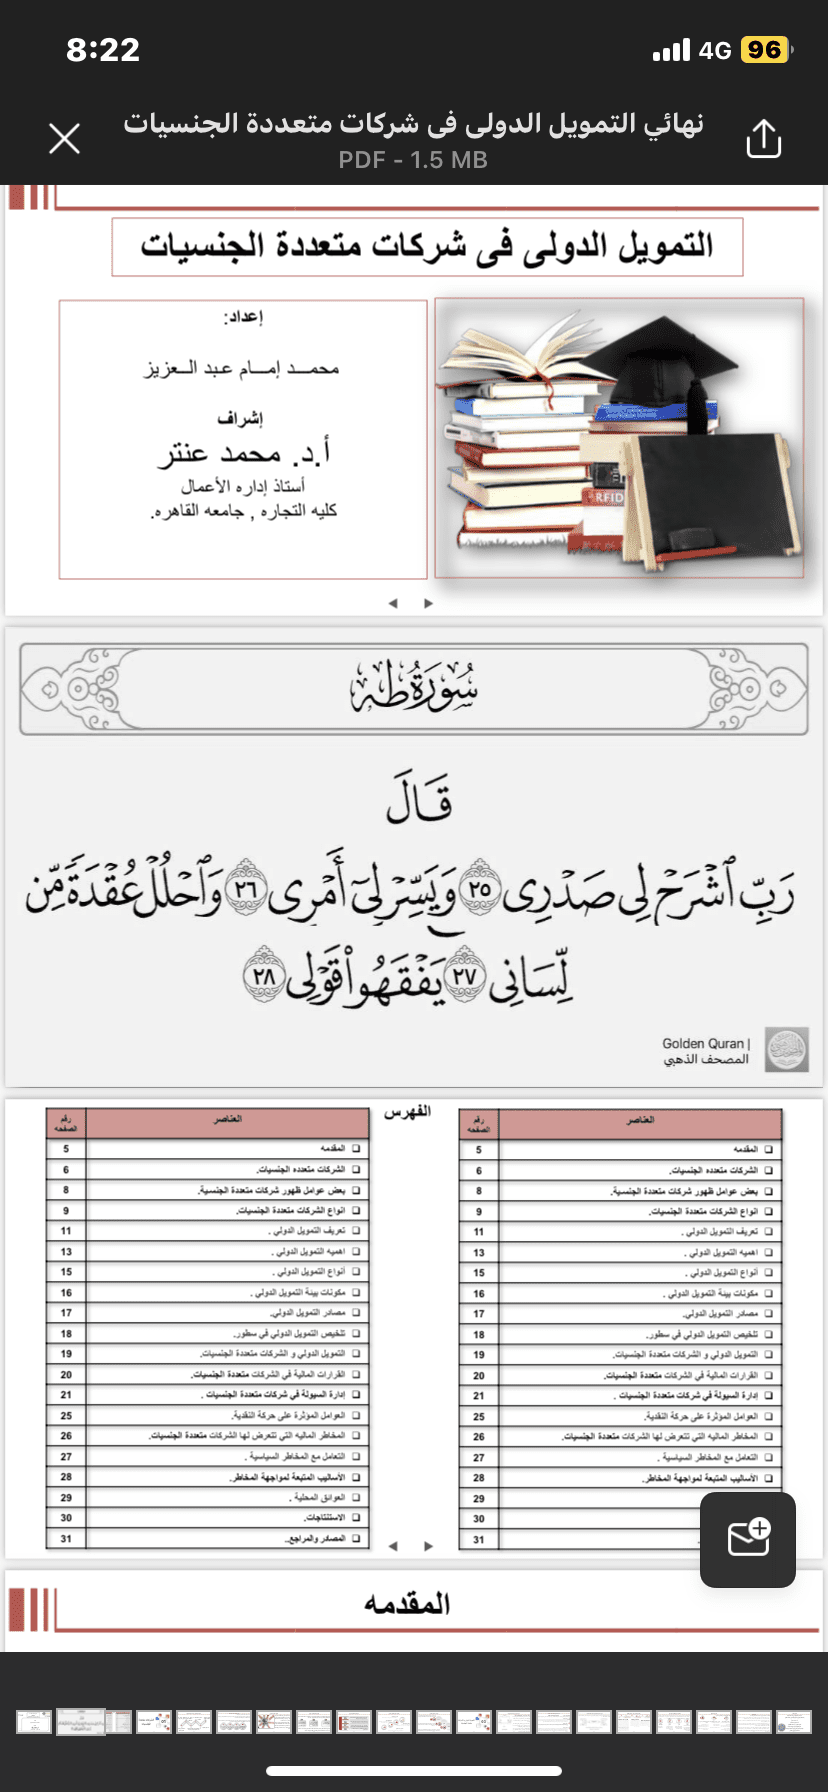 8:22
4G 96
نهائي التمويل الدولى فى شركات متعددة الجنسيات
PDF - 1.5 MB
التمويل الدولى فى شركات متعددة الجنسيات
إعداد:
محمـــد إمـــام عبد الـــعزيز
إشراف
أ.د. محمد عنتر
أستاذ إداره الأعمال
كليه التجاره , جامعه القاهره.
RFID
سُورَةُ طه
قَالَ
رَبِّ ٱشْرَحْ لِى صَدْرِى ٢٥ وَيَسِّرْ لِىٓ أَمْرِى ٢٦ وَٱحْلُلْ عُقْدَةً مِّن
لِّسَانِى ٢٧ يَفْقَهُوا۟ قَوْلِى ٢٨
Golden Quran |
المصحف الذهبي
الفهرس
العناصر رقم الصفحه
المقدمه 5
الشركات متعدده الجنسيات. 6
بعض عوامل ظهور شركات متعددة الجنسية. 8
انواع الشركات متعددة الجنسيات. 9
تعريف التمويل الدولي . 11
اهميه التمويل الدولي . 13
أنواع التمويل الدولي . 15
مكونات بيئة التمويل الدولي . 16
مصادر التمويل الدولي. 17
تلخيص التمويل الدولي في سطور. 18
التمويل الدولي و الشركات متعددة الجنسيات. 19
القرارات المالية في الشركات متعددة الجنسيات. 20
إدارة السيولة في شركات متعددة الجنسيات . 21
العوامل المؤثرة على حركة النقدية. 25
المخاطر الماليه التي تتعرض لها الشركات متعددة الجنسيات. 26
التعامل مع المخاطر السياسية . 27
الأساليب المتبعة لمواجهة المخاطر. 28
29
30
31
العناصر رقم الصفحه
المقدمه 5
الشركات متعدده الجنسيات. 6
بعض عوامل ظهور شركات متعددة الجنسية. 8
انواع الشركات متعددة الجنسيات. 9
تعريف التمويل الدولي . 11
اهميه التمويل الدولي . 13
أنواع التمويل الدولي . 15
مكونات بيئة التمويل الدولي . 16
مصادر التمويل الدولي. 17
تلخيص التمويل الدولي في سطور. 18
التمويل الدولي و الشركات متعددة الجنسيات. 19
القرارات المالية في الشركات متعددة الجنسيات. 20
إدارة السيولة في شركات متعددة الجنسيات . 21
العوامل المؤثرة على حركة النقدية. 25
المخاطر الماليه التي تتعرض لها الشركات متعددة الجنسيات. 26
التعامل مع المخاطر السياسية . 27
الأساليب المتبعة لمواجهة المخاطر. 28
العوائق المحلية . 29
الاستنتاجات. 30
المصادر والمراجع. 31
المقدمه